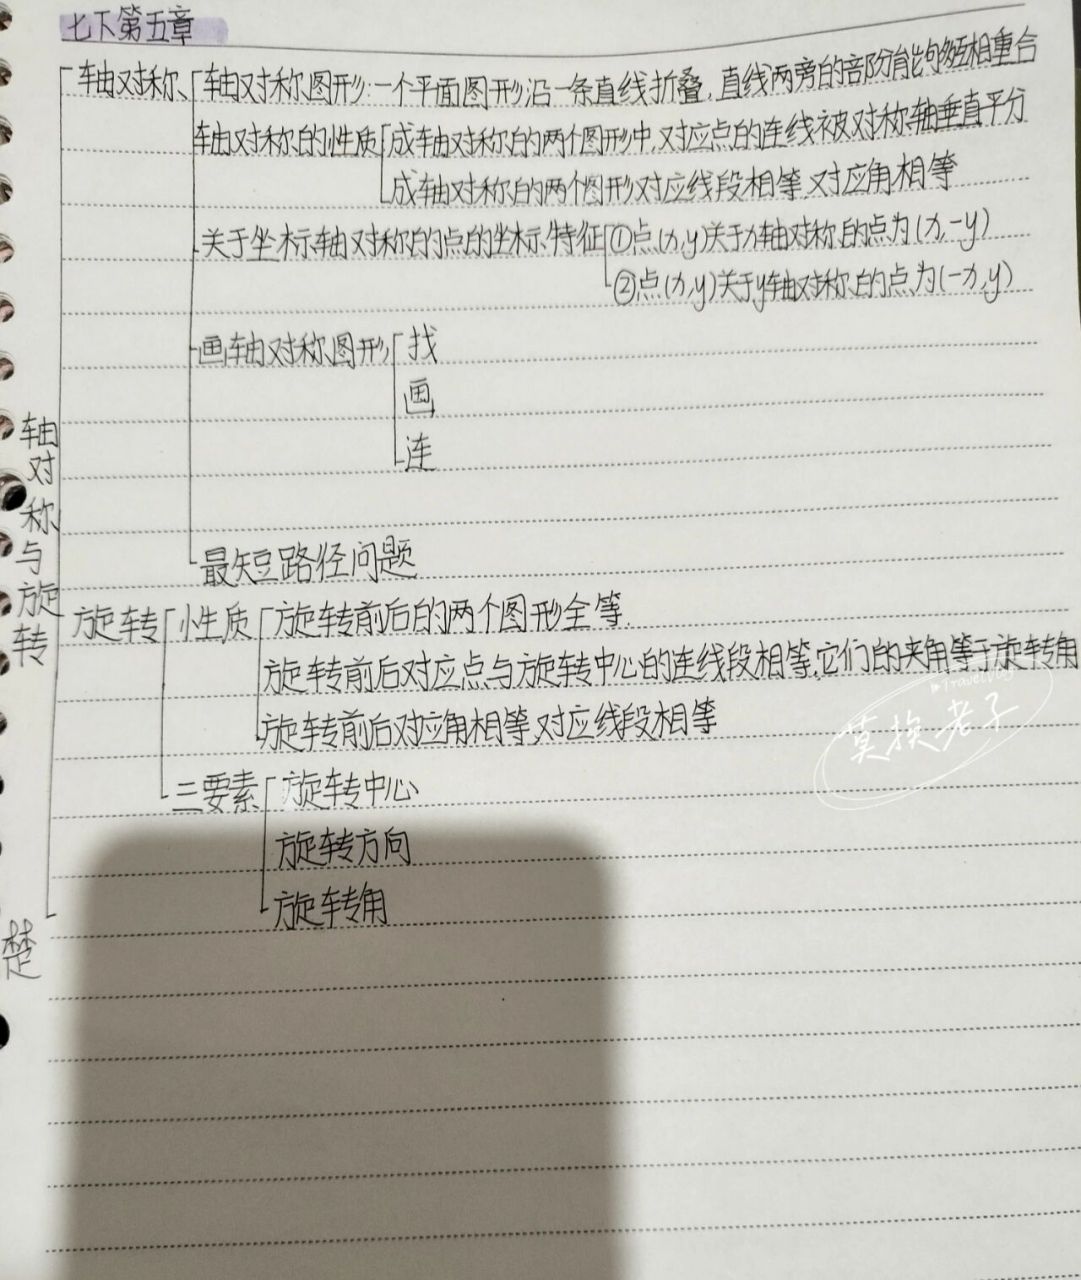 七下第五章
轴对称
轴对称图形:一个平面图形沿一条直线折叠,直线两旁的部分能够互相重合
轴对称的性质
成轴对称的两个图形中,对应点的连线被对称轴垂直平分
成轴对称的两个图形对应线段相等,对应角相等
关于坐标轴对称的点的坐标特征
①点(x,y)关于x轴对称的点为(x,-y)
②点(x,y)关于y轴对称的点为(-x,y)
画轴对称图形
找
画
连
最短路径问题
轴对称与旋转
旋转
性质
旋转前后的两个图形全等.
旋转前后对应点与旋转中心的连线段相等,它们的夹角等于旋转角
旋转前后对应角相等,对应线段相等
三要素
旋转中心
旋转方向
旋转角
楚
TravelVlog
莫挨老子